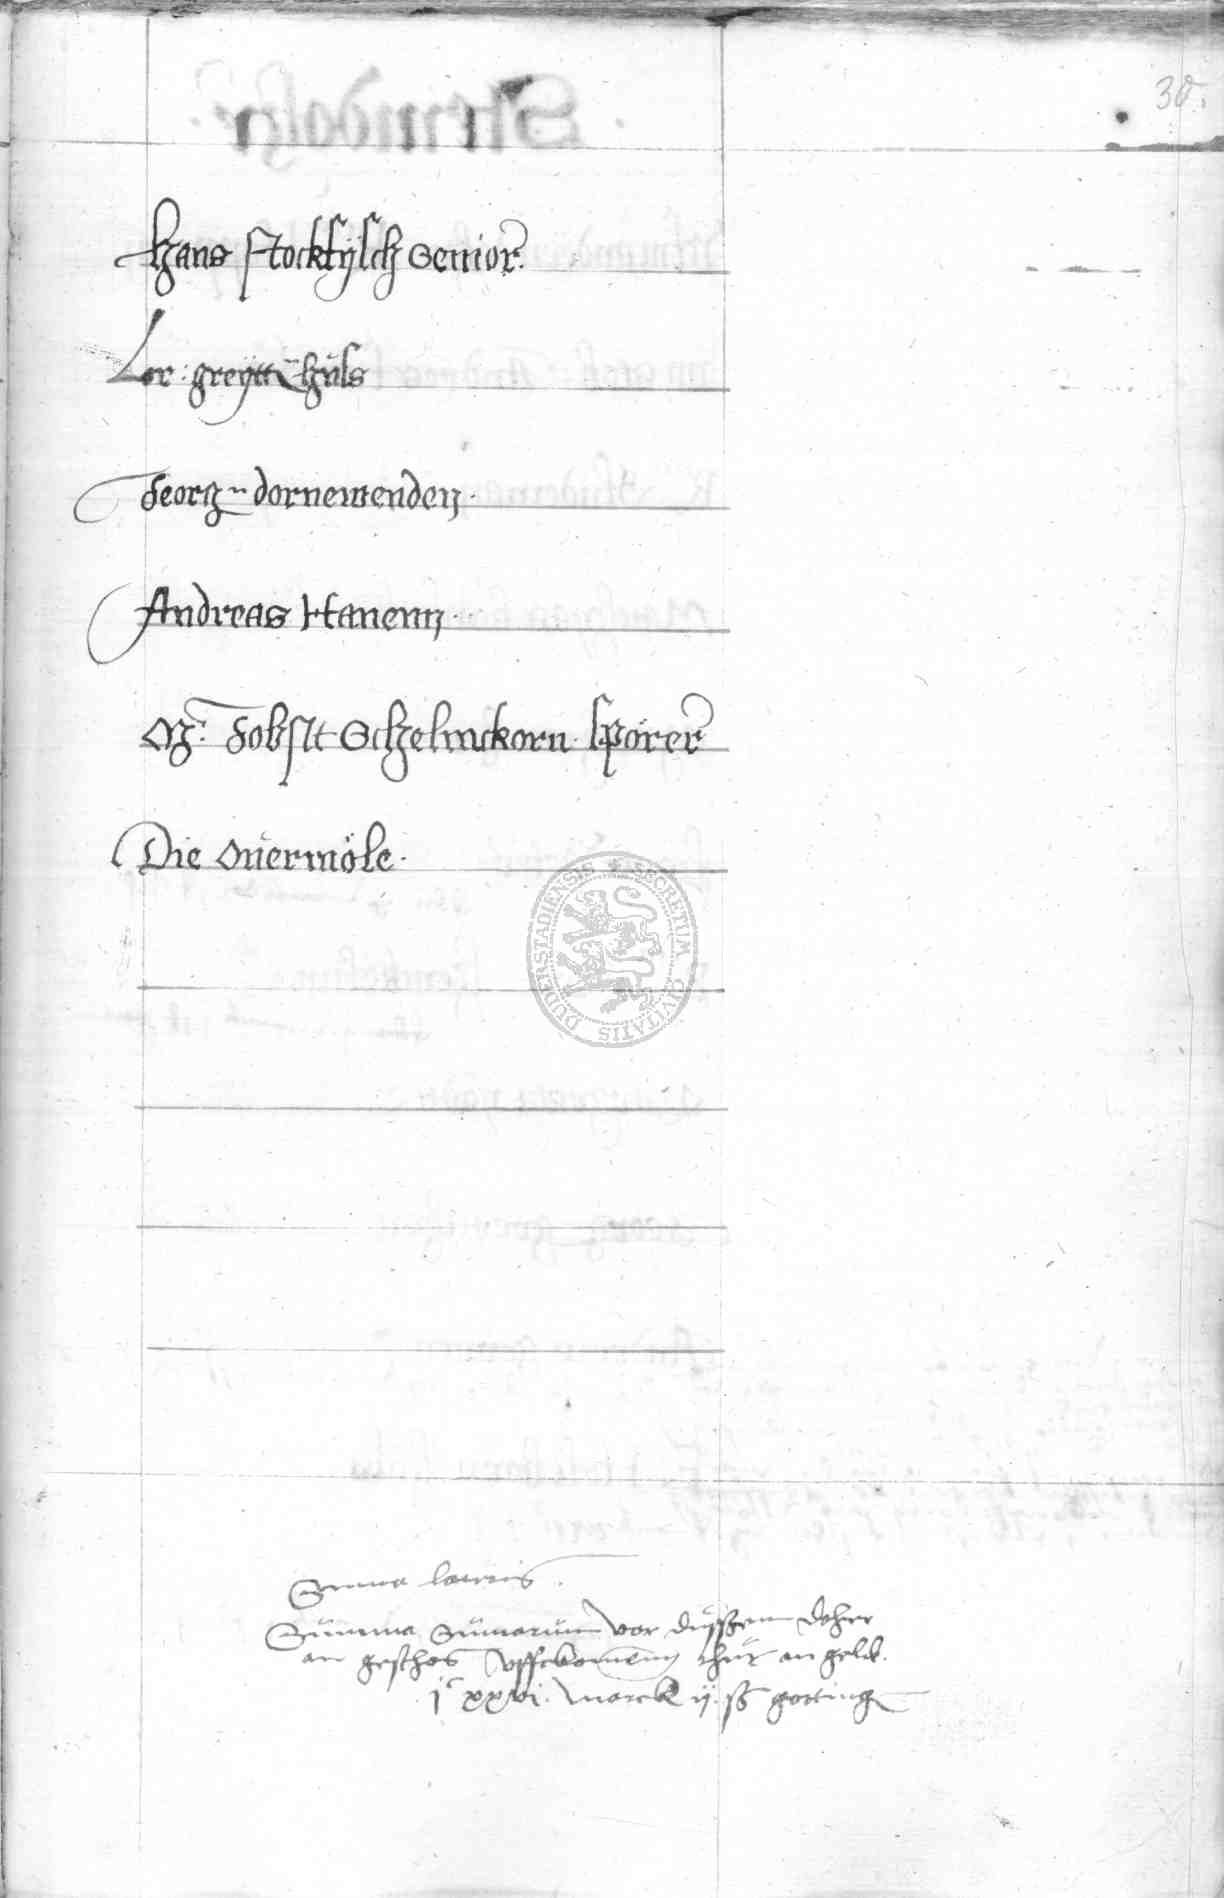 30.
Hans stockfysch Senior
Ler: greytt hüls
Jeorg dornewenden
Andreas Hanenn
M: Jobst Schelmckorn sporer
Die Övermöle
SECRETUM CIVITATIS DUDERSTADIENSIS
Suma lateris
Summa Sumarum vor dussem
an geschos uffekomen thut an gelde
jc xxvi marck ij ß gotting